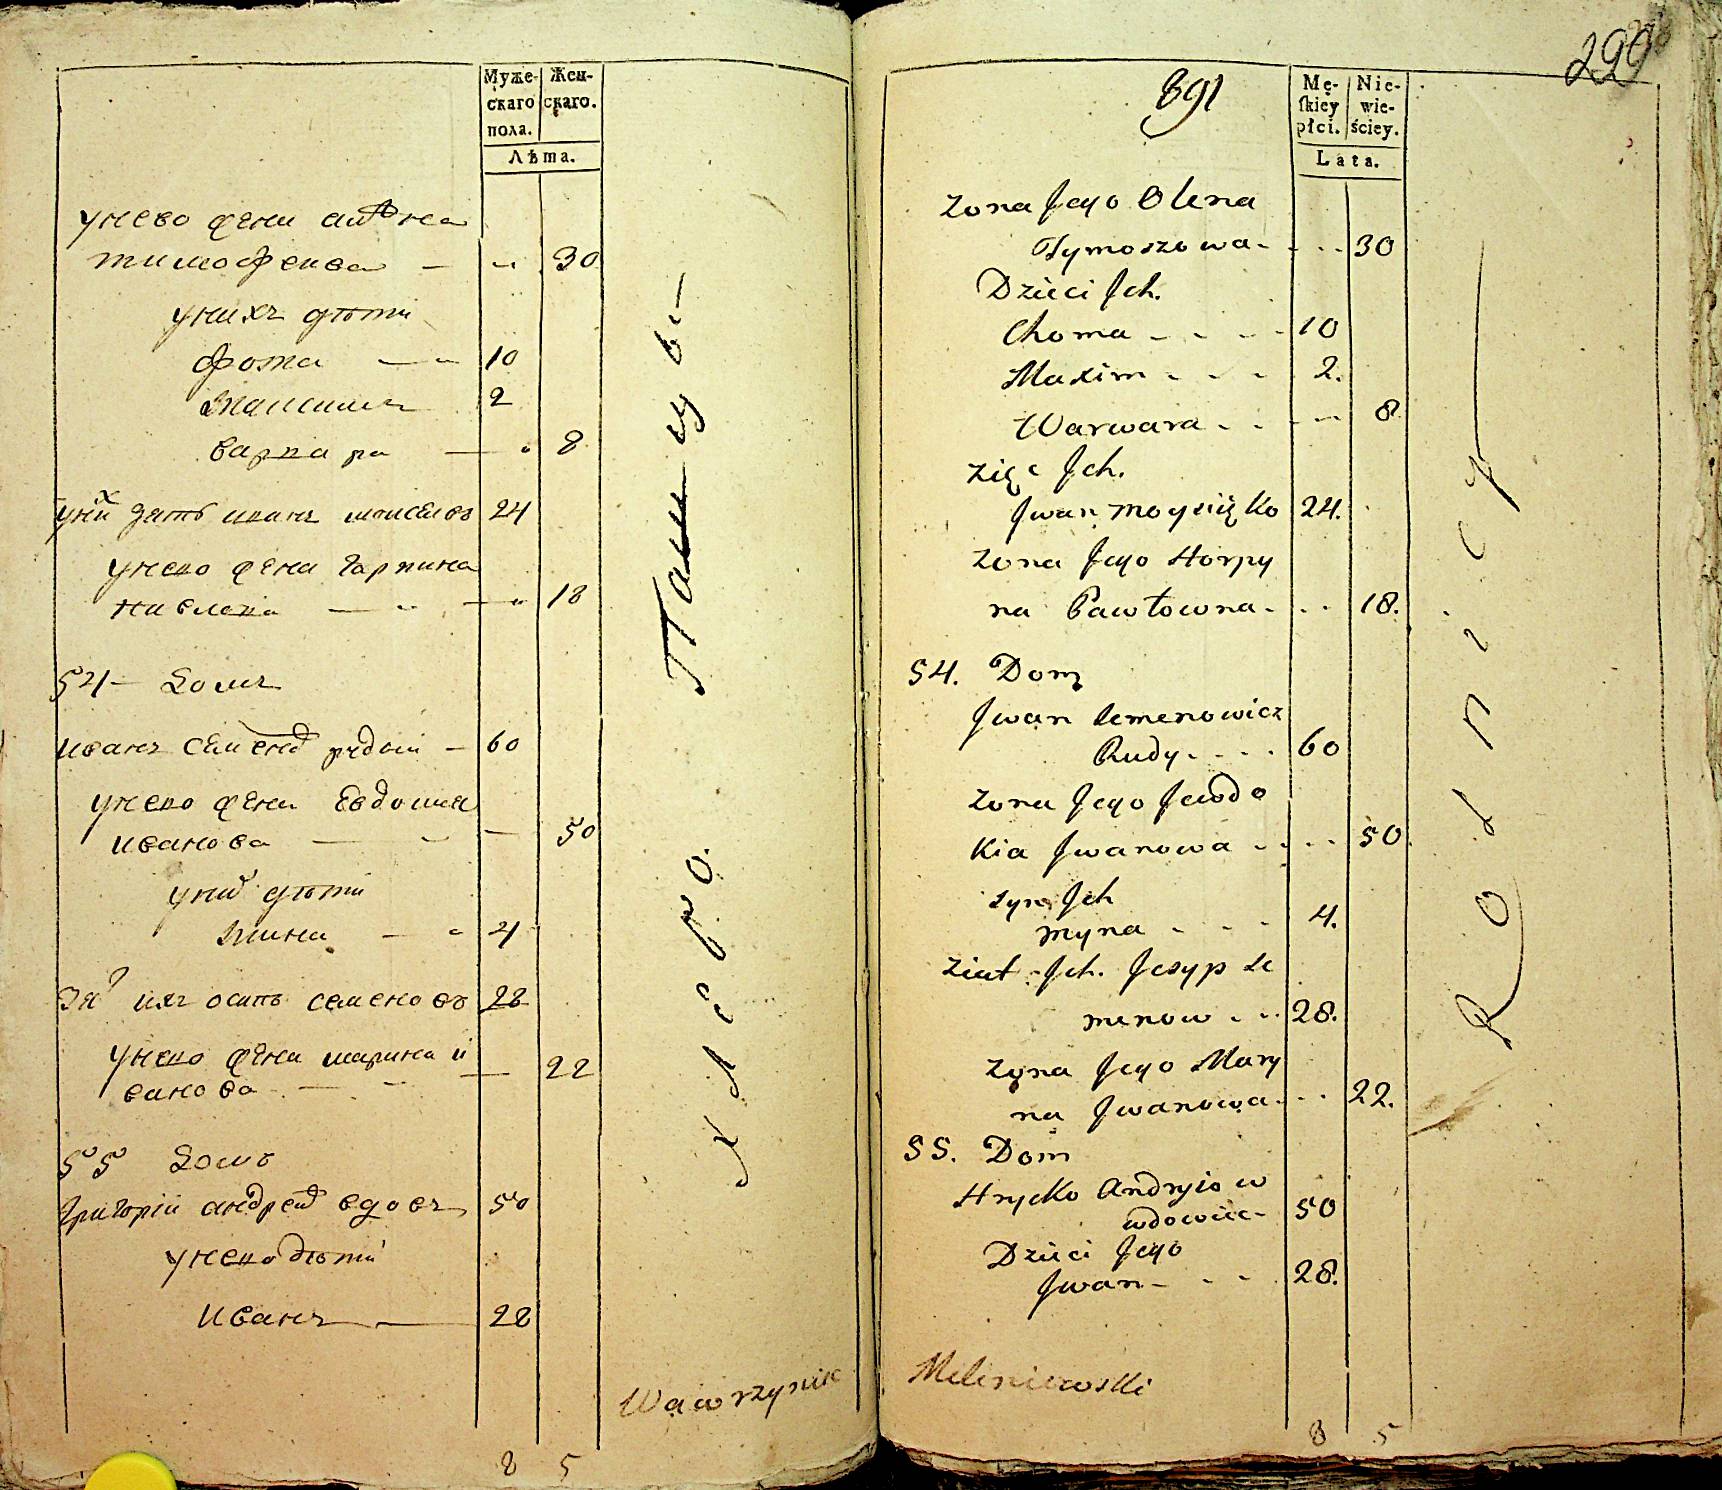 Муже-
скаго
пола.
Жен-
скаго.
Лѣта.
унево жена
тимофеива — " 30
унихъ дѣти
фома — " 10
Максимъ 2
варвара — " 8
уних зять иванъ моисеевъ 24
унево жена гарпина
павлова — " — " 18
54 — Домъ
иванъ семенов рудый — 60
унево жена Евдокия
иванова — " — 50
уних дѣти
Мина — " 4
зят ихъ осипъ семеновъ 28
унево жена марина и
ванова — - — 22
55 Домъ
Григорій андреев вдовъ 50
унево дѣти
Иванъ — 28
8 5
Пашцы —
хлѣбро.
Wawrzyniec
299
891
Mę-
skiey
płci.
Nie-
wie-
ściey.
Lata.
Zona Jego Olena
Tymoszowa - - - 30
Dzieci Jch.
Choma - - - - 10
Maxim - - - 2.
Warwara - - - - 8
Zięc Jch.
Jwan Moysiięko 24.
Zona Jego Horpy
na Pawłowna - . . 18.
54. Dom
Jwan Semenowicz
Rudy - - - - 60
Zona Jego Jewdo
kia Jwanowa - - - - 50
Syn Jch
myna - - - - 4.
Ziat Jch. Josyp Se
menow - - - 28.
Zona Jego Mary
na Jwanowa - - - 22.
55. Dom
Hrycko Andryiow
wdowiec - 50
Dzieci Jego
Jwan - - - 28.
Meleniewski
8 5
Rolnicy